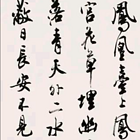 鳳凰臺上鳳
宮花草埋幽
落青天外二水
蔽日長安不見